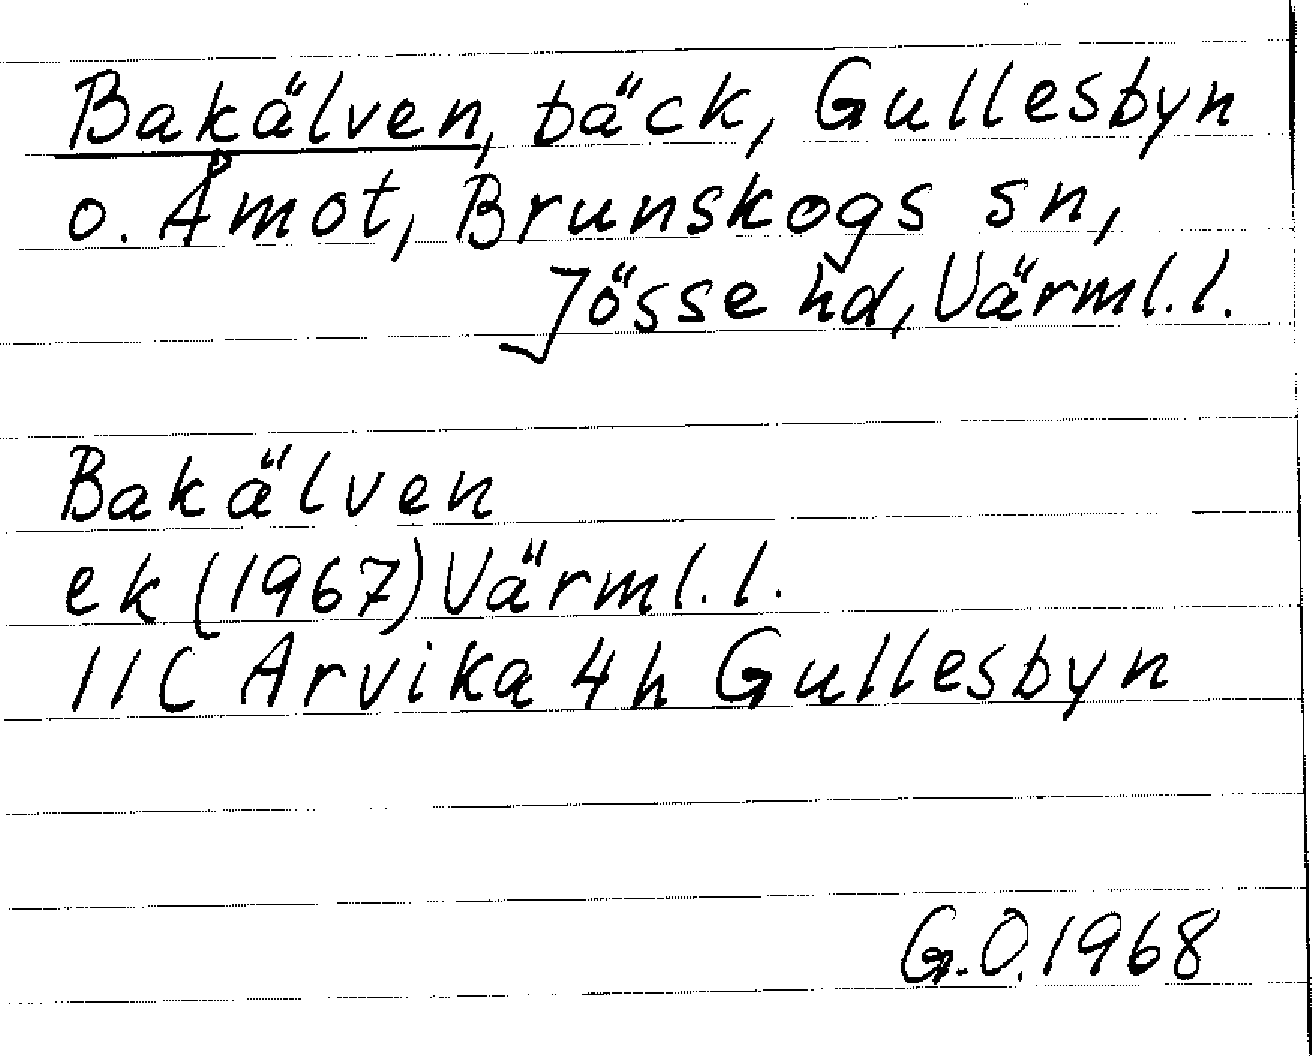 Bakälven, bäck, Gullesbyn
o. Åmot, Brunskogs sn,
Jösse hd, Värml. l.
Bakälven
ek (1967) Värml. l.
11C Arvika 4h Gullesbyn
G.O. 1968